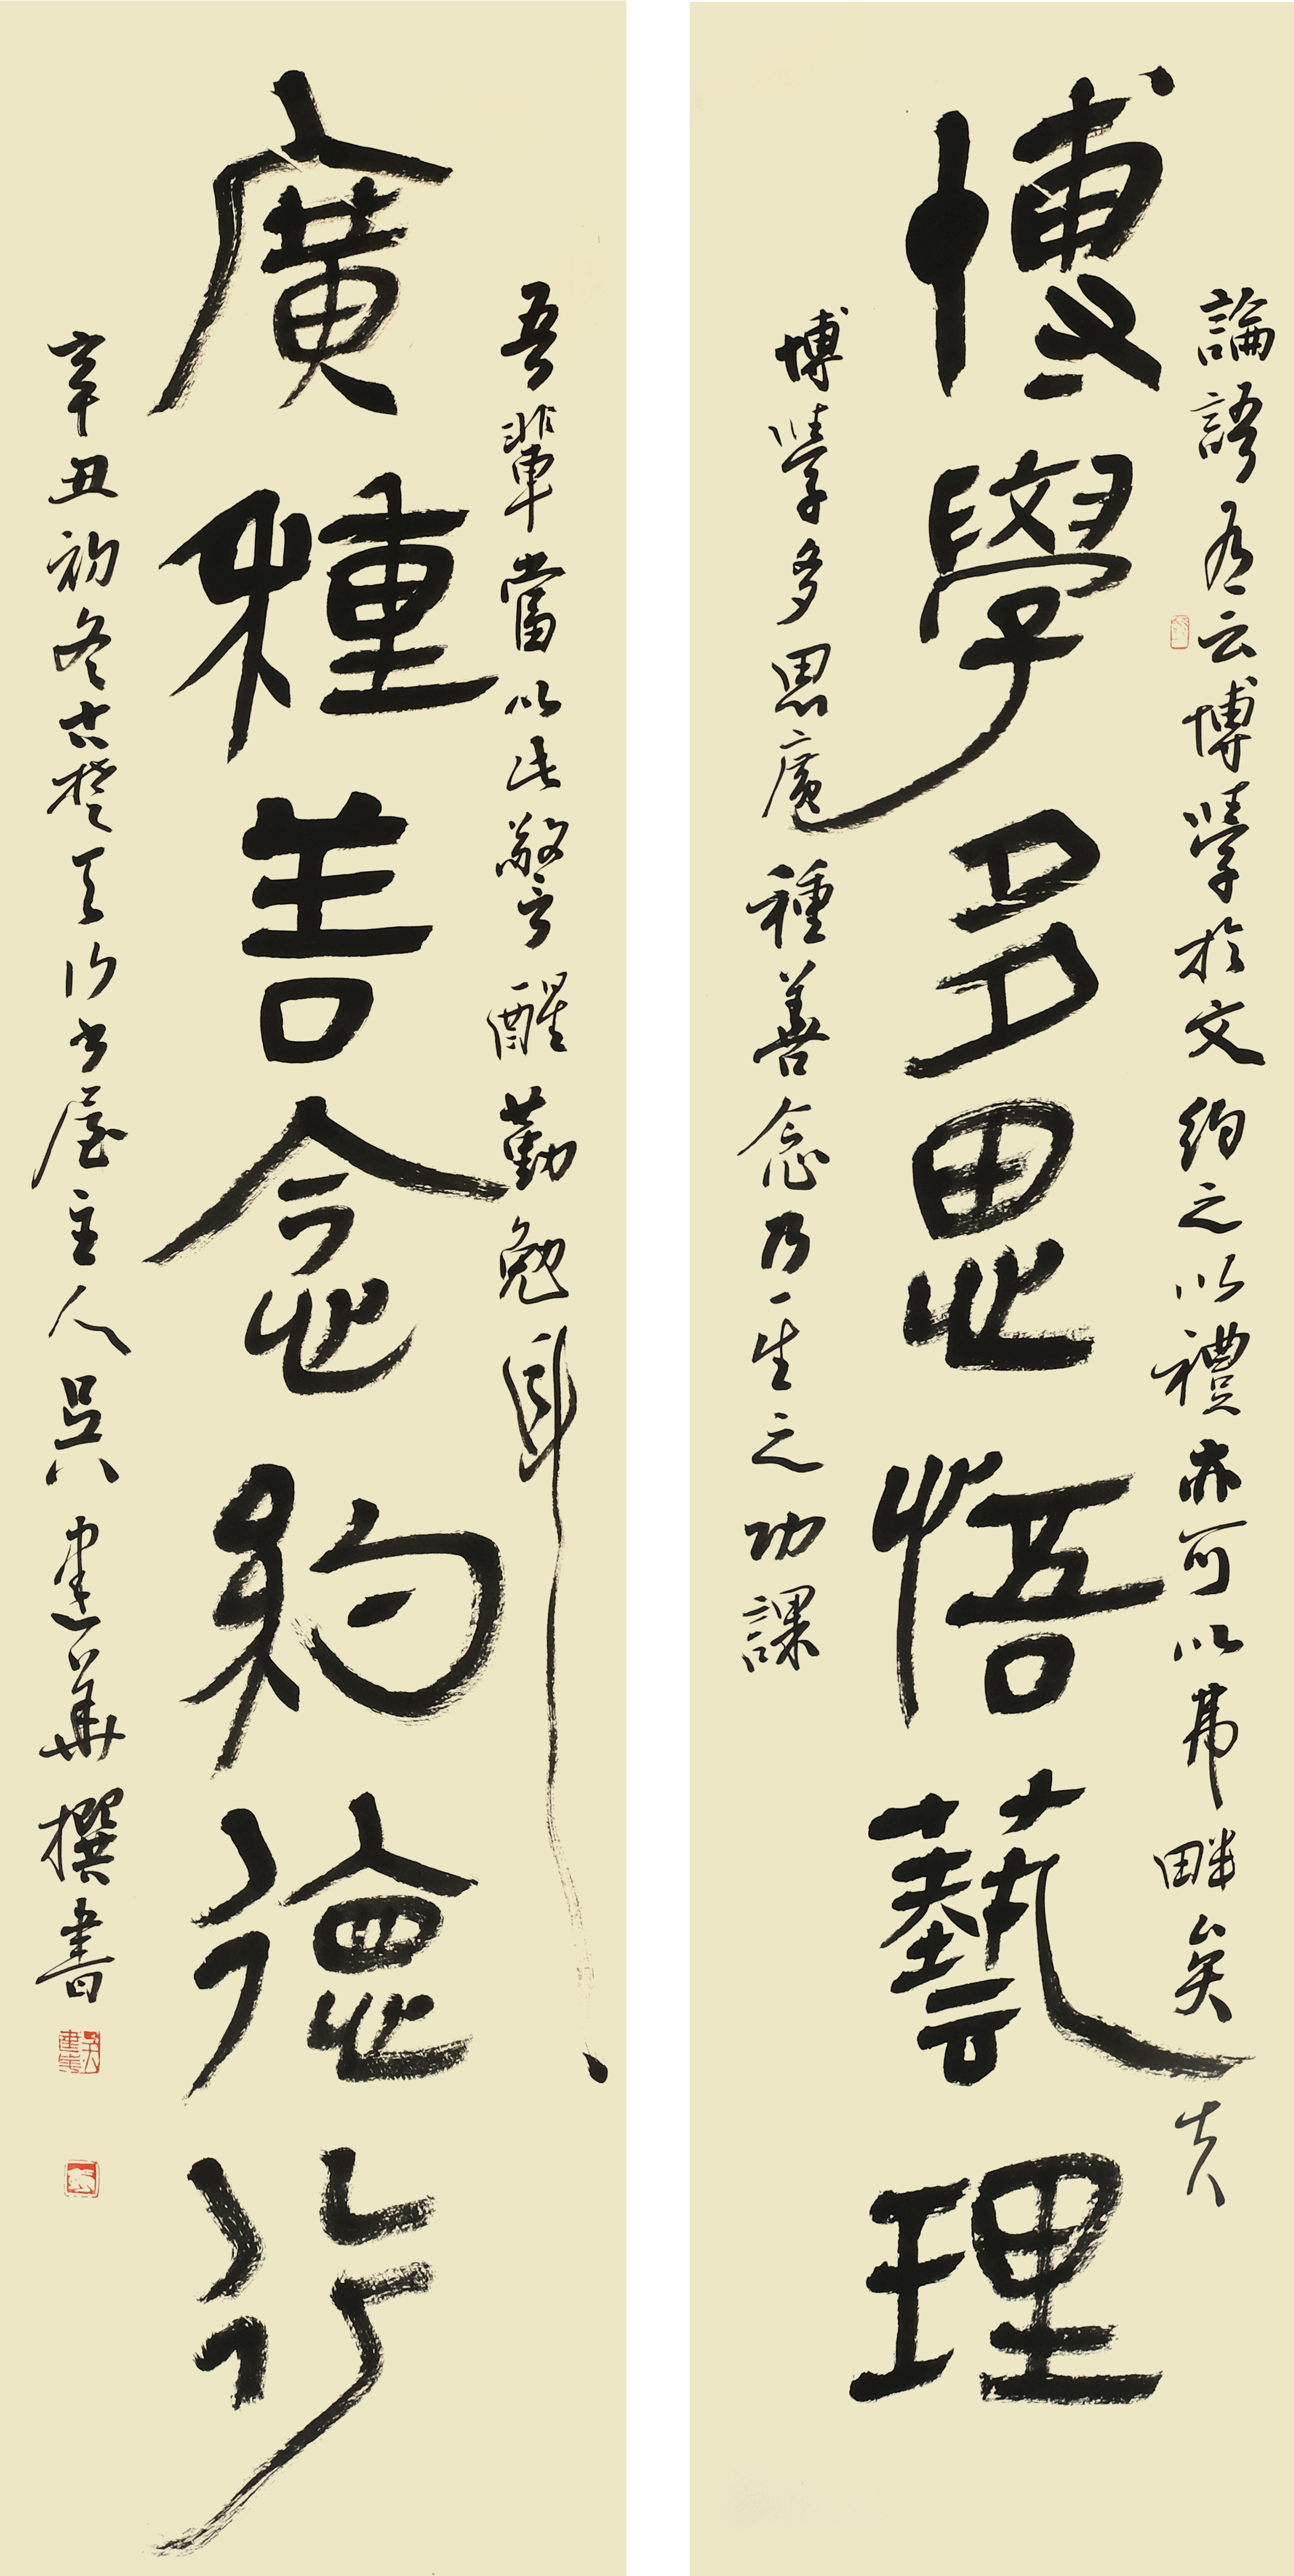 論語有云博學於文約之以禮亦可以弗畔矣夫
博學多思悟藝理
博學多思廣種善念乃一生之功課
吾輩當以此警醒勤勉耳
廣種善念約德行
辛丑初冬古楚天汐書屋主人吳建華撰書